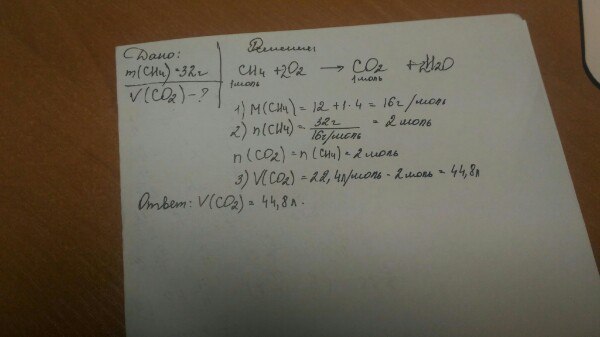 Дано:
m(CH4)=32г
V(CO2)-?
Решение
CH4 + 2O2 → CO2 + 2H2O
1моль 1моль
1) M(CH4) = 12 + 1·4 = 16г/моль
2) n(CH4) = 32г / 16г/моль = 2моль
n(CO2) = n(CH4) = 2моль
3) V(CO2) = 22,4л/моль · 2моль = 44,8л
Ответ: V(CO2) = 44,8л.